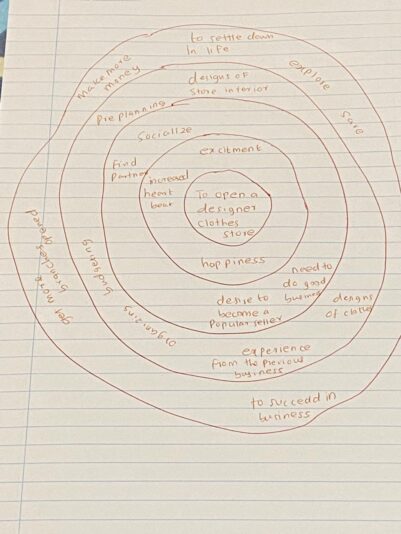 to settle down
In life
make more
money
explore
safe
designs of
store interior
pre planning
socialize
excitment
Find
partner
increased
heart
beat
To open a
designer
clothes
store
happiness
need to
do good
busines
desire to
become a
Popular seller
designs
of clothe
budgeting
organizing
get more
branches opened
experience
from the previous
business
to succedd in
business